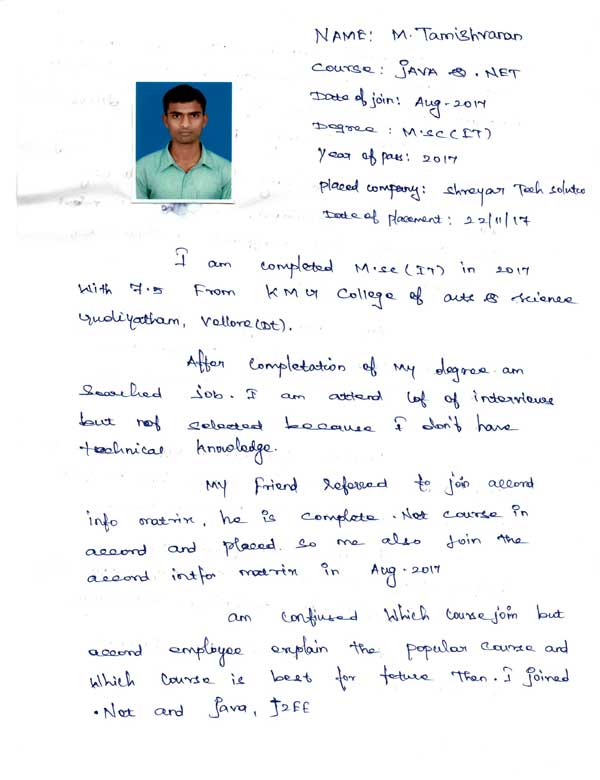 NAME: M. Tamishvaran
Course: JAVA & .NET
Date of join: Aug-2017
Degree: M.SC (IT)
Year of pass: 2017
placed company: Shreyar Tech Soluto
Date of placement: 22/11/17
I am completed M.sc (IT) in 2017
With 7.5 From K M G College of arts & science
Gudiyatham, Vellore (Dt).
After Completation of My degree am
Searched job. I am attend lof of interviews
but not selected because I don't have
technical knowledge.
My friend refered to join accord
info matrix, he is complete .Net course in
accord and placed. So me also join the
accord intfo matrix in Aug-2017
am confused Which course join but
accord employee explain the popular course and
Which course is best for feture then. I joined
.Net and Java, J2EE